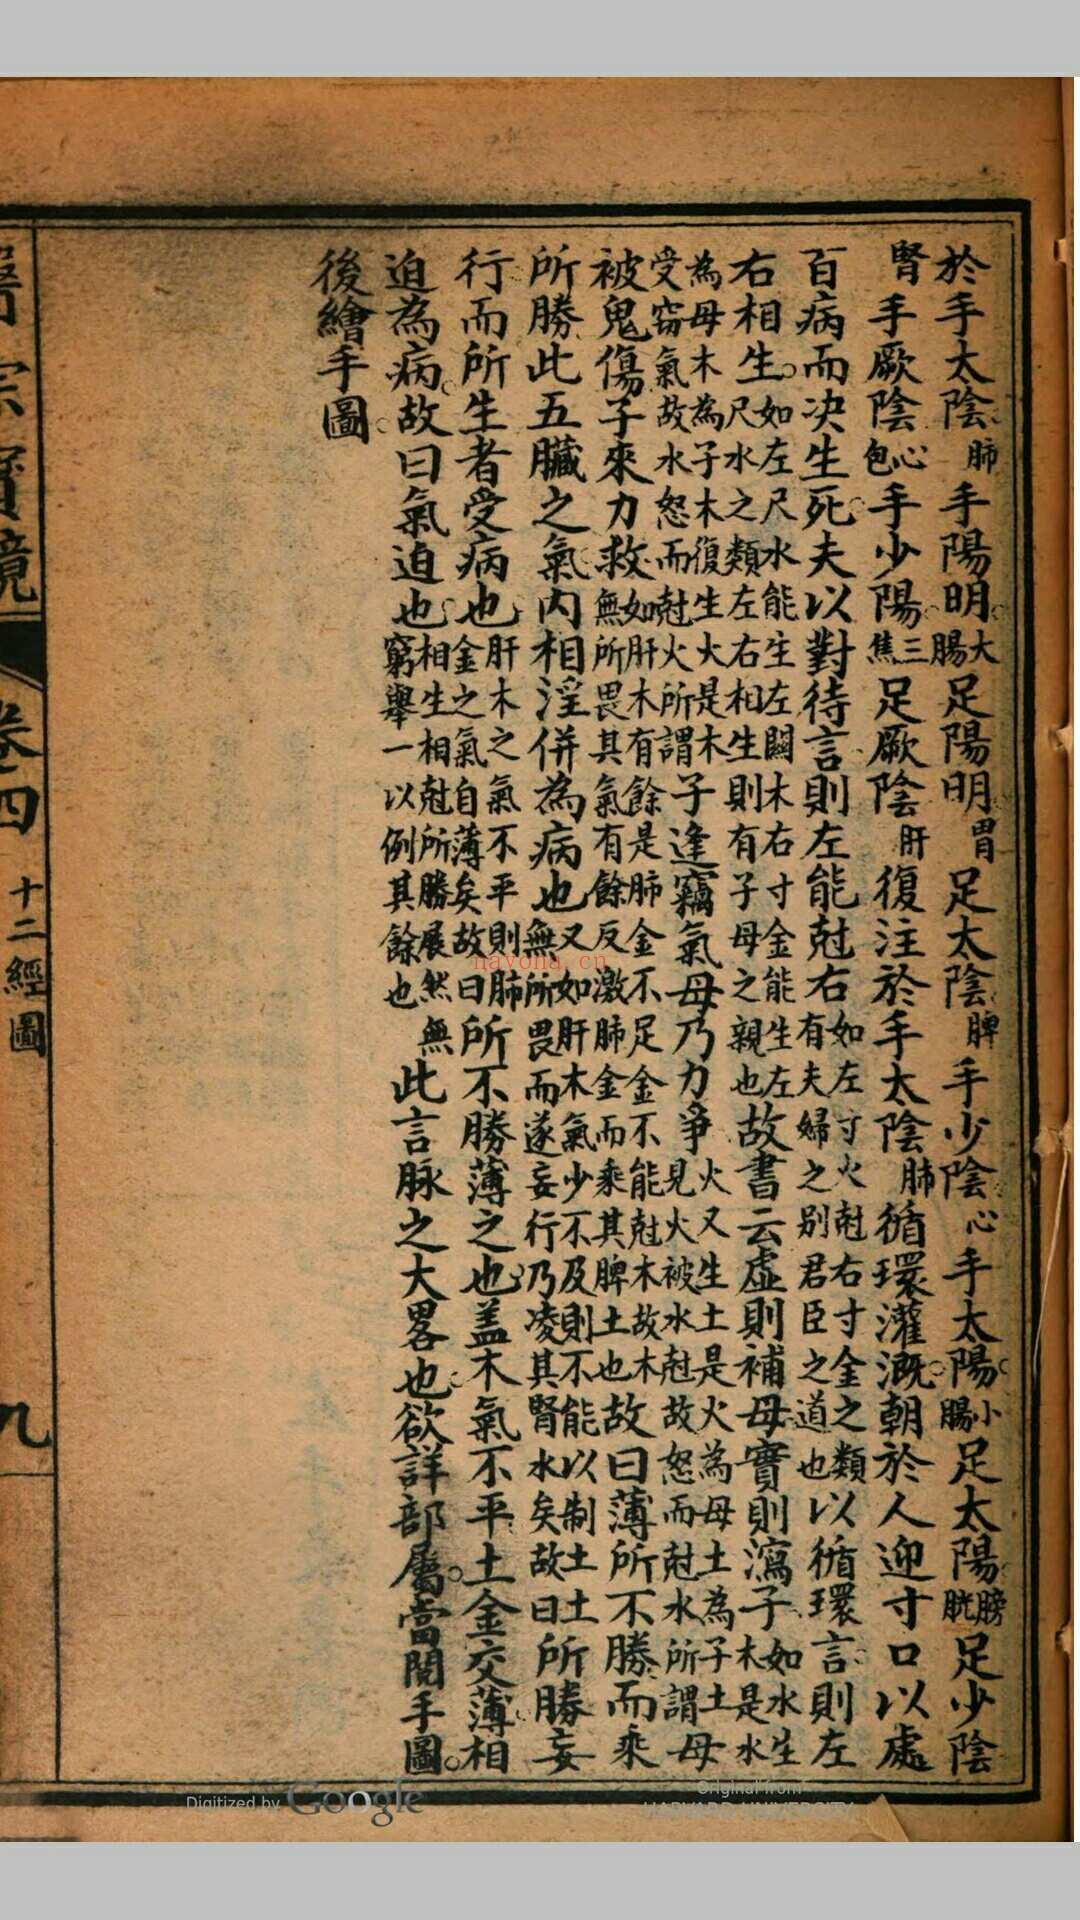 於手太陰肺手陽明大腸足陽明胃足太陰脾手少陰心手太陽小腸足太陽膀胱足少陰
腎手厥陰心包手少陽三焦足厥陰肝復注於手太陰肺循環灌溉朝於人迎寸口以處
百病而决生死夫以對待言則左能尅右如左寸火尅右寸金之類有夫婦之別君臣之道也以循環言則左
右相生如左尺水能生左關木右寸金能生左尺水之類左右相生則有子母之親也故書云虛則補母實則瀉子如水生木是水
為母木為子木復生火是木受窃氣故水怒而尅火所謂子逢竊氣母乃力爭火又生土是火為母土為子土母見火被水尅故怒而尅水所謂母
被鬼傷子來力救如肝木有餘是肺金不足金不能尅木故木無所畏其氣有餘反激肺金而乘其脾土也故曰薄所不勝而乘
所勝此五臟之氣內相淫併為病也又如肝木氣少不及則不能以制土土無所畏而遂妄行乃凌其腎水矣故曰所勝妄
行而所生者受病也肝木之氣不平則肺金之氣自薄矣故曰所不勝薄之也盖木氣不平土金交薄相
迫為病故曰氣迫也相生相尅所勝展然無窮舉一以例其餘也此言脉之大畧也欲詳部屬當閱手圖
後繪手圖
醫宗寶鏡 卷四 十二經圖 九
nayona.cn
Digitized by Google
Original from
HARVARD UNIVERSITY